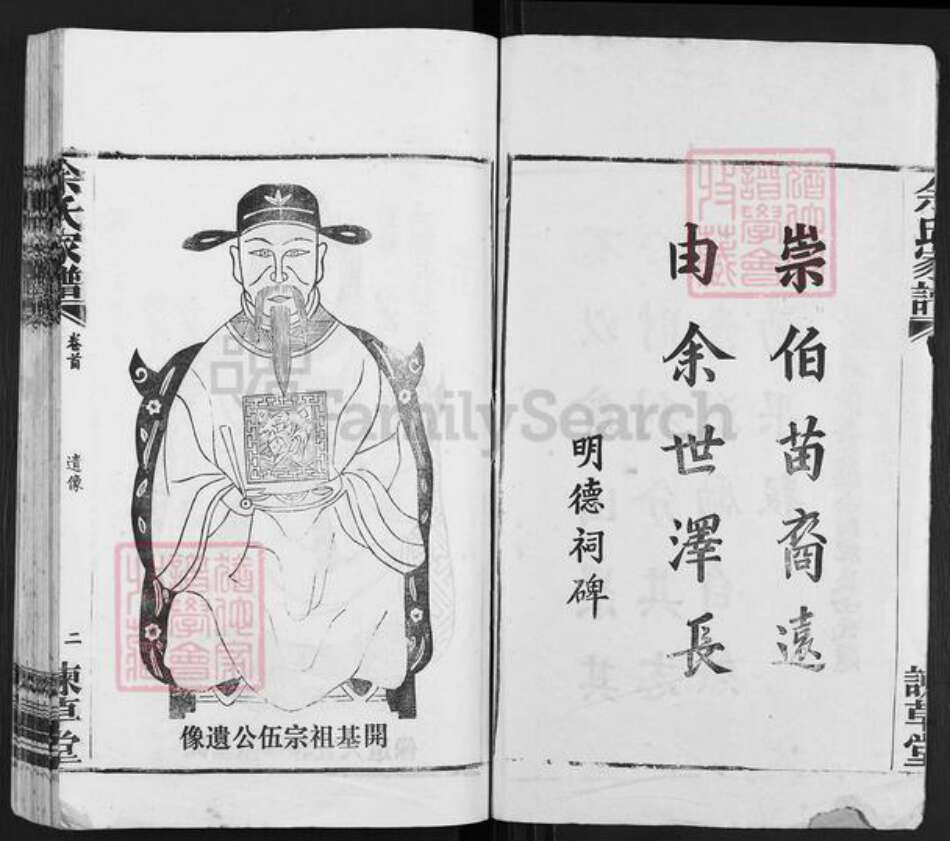 余氏家譜
諫草堂
崇伯苗裔遠
由余世澤長
明德祠碑
開基祖宗伍公遺像
余氏家譜
卷首
遺像
二
諫草堂
FamilySearch